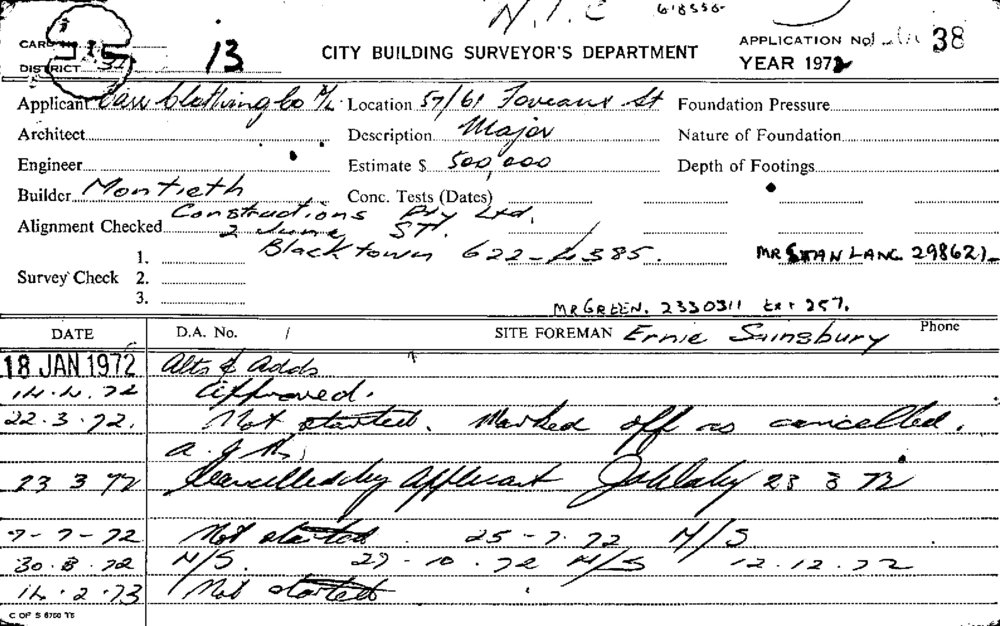 N.I.C 618556
CARD
DISTRICT 31 13 CITY BUILDING SURVEYOR'S DEPARTMENT APPLICATION No. 38
YEAR 1972
Applicant Clothing Co P/L Location 57/61 Foveaux St Foundation Pressure
Architect Description Major Nature of Foundation
Engineer Estimate $ 500,000 Depth of Footings
Builder Montieth Conc. Tests (Dates)
Constructions Pty Ltd.
Alignment Checked 2 June ST.
1. Blacktown 622-4385. MR STAN LANG 298621
Survey Check 2.
3.
MR GREEN. 2330311 Ext 257.
DATE D.A. No. / SITE FOREMAN Ernie Sainsbury Phone
18 JAN 1972 Alts & Adds
14.4.72 Approved.
22.3.72. Not started. Marked off as cancelled.
23 3 72 Cancelled by Applicant 23 3 72
7-7-72 Not started. 25-7.72 N/S
30.8.72 N/S. 27-10.72 N/S 12.12.72
14.2.73 Not started
C OF S 6760 75